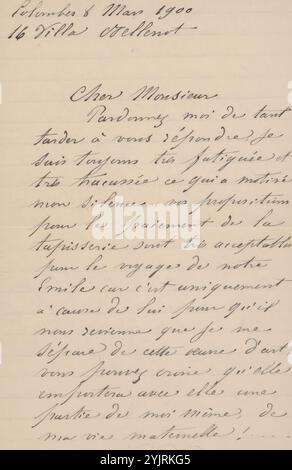 Colombes 8 Mars 1900
16 Villa
Cher Monsieur
Pardonnez moi de tant
tarder à vous répondre, je
suis toujours très fatiguée et
très tracassée ce qui a motivé
mon silence. vos propositions
pour le paiement de la
tapisserie sont très acceptables
pour le voyage de notre
Emile car c'est uniquement
à cause de lui pour qu'il
nous revienne que je me
sépare de cette œuvre d'art
vous pouvez croire qu'elle
emportera avec elle une
partie de moi même, de
ma vie maternelle !
alamy
Image ID: 2YJRKG5
www.alamy.com